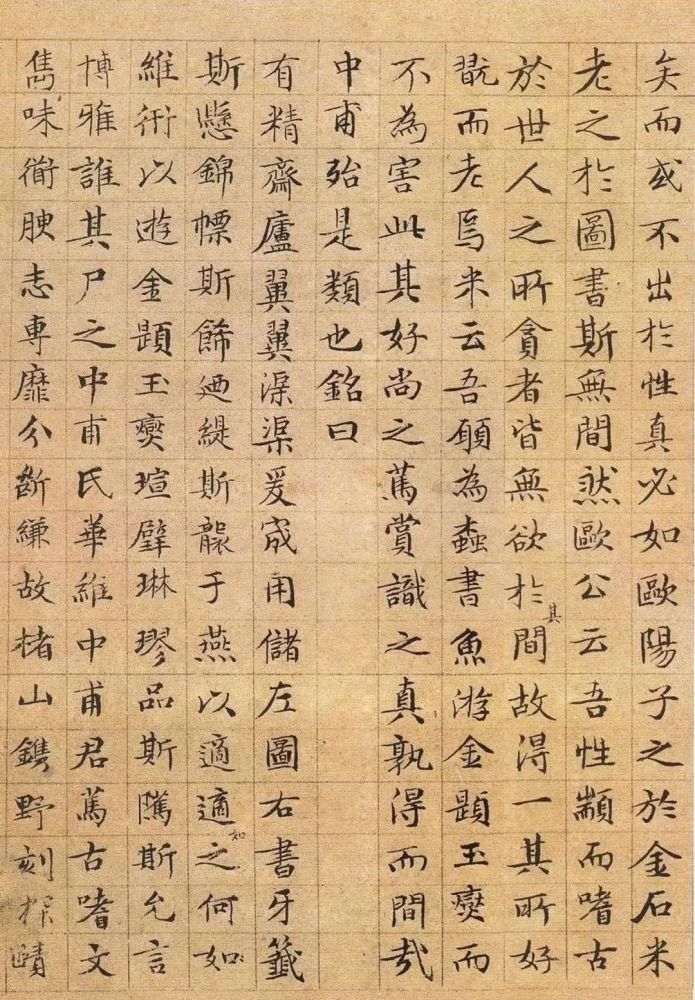 矣而或不出於性真必如歐陽子之於金石米
老之於圖書斯無間然歐公云吾性顓而嗜古
於世人之所貪者皆無欲於其間故得一其所好
翫而老焉米云吾願為螙書魚游金題玉躞而
不為害此其好尚之篤賞識之真孰得而間哉
中甫殆是類也銘曰
有精齋廬翼翼渠渠爰宬用儲左圖右書牙籤
斯懸錦幖斯飾迺緹斯襲于燕以適適之如何如
維衎以遊金題玉躞瑄璧琳璆品斯隲斯允言
博雅誰其尸之中甫氏華維中甫君篤古嗜文
雋味衜腴志專靡分斷縑故楮山鐫野刻探賾